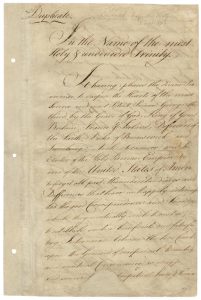 Duplicate.
In the Name of the most
Holy & undivided Trinity.
It having pleased the Divine Pro-
vidence to dispose the Hearts of the most
Serene and most Potent Prince George the
third, by the Grace of God, King of Great
Britain, France & Ireland, Defender of
the Faith, Duke of Brunswick and
Lunenburg, Arch-Treasurer and
Elector of the Holy Roman Empire &ca
and of the United States of America
to forget all past Misunderstandings and
Differences that have unhappily interrupted
the good Correspondence and Friendship
which they mutually wish to
establish such a beneficial and satisfac-
tory Intercourse between the two
upon the Ground of reciprocal Advantages
and mutual Convenience as may